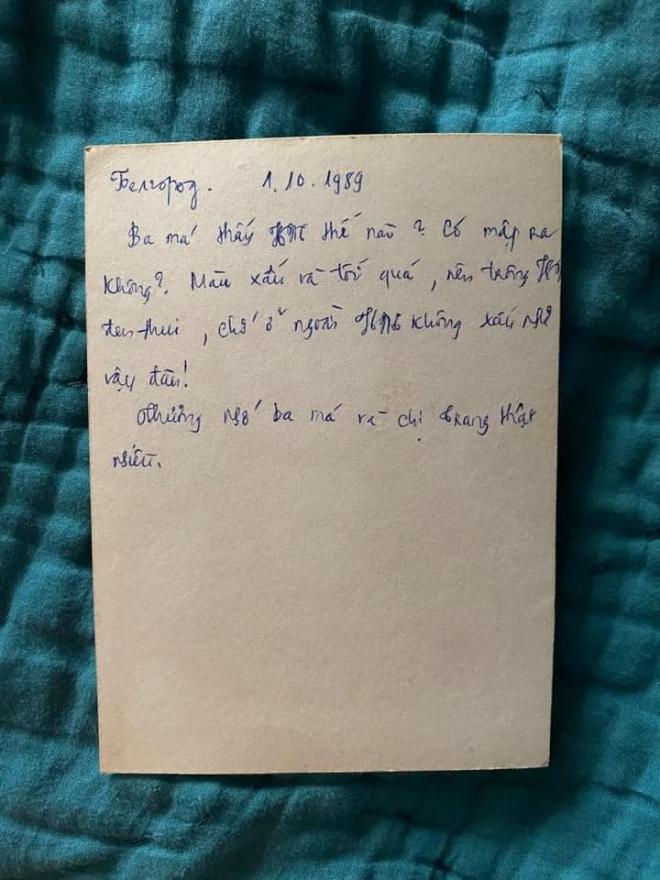 Белгород. 1.10.1989
Ba má thấy thế nào? Có mập ra
không? Màu xấu và tối quá, nên trông
đen thui, chứ ở ngoài không xấu như
vậy đâu!
Thương nhớ ba má và chị Trang thật
nhiều.